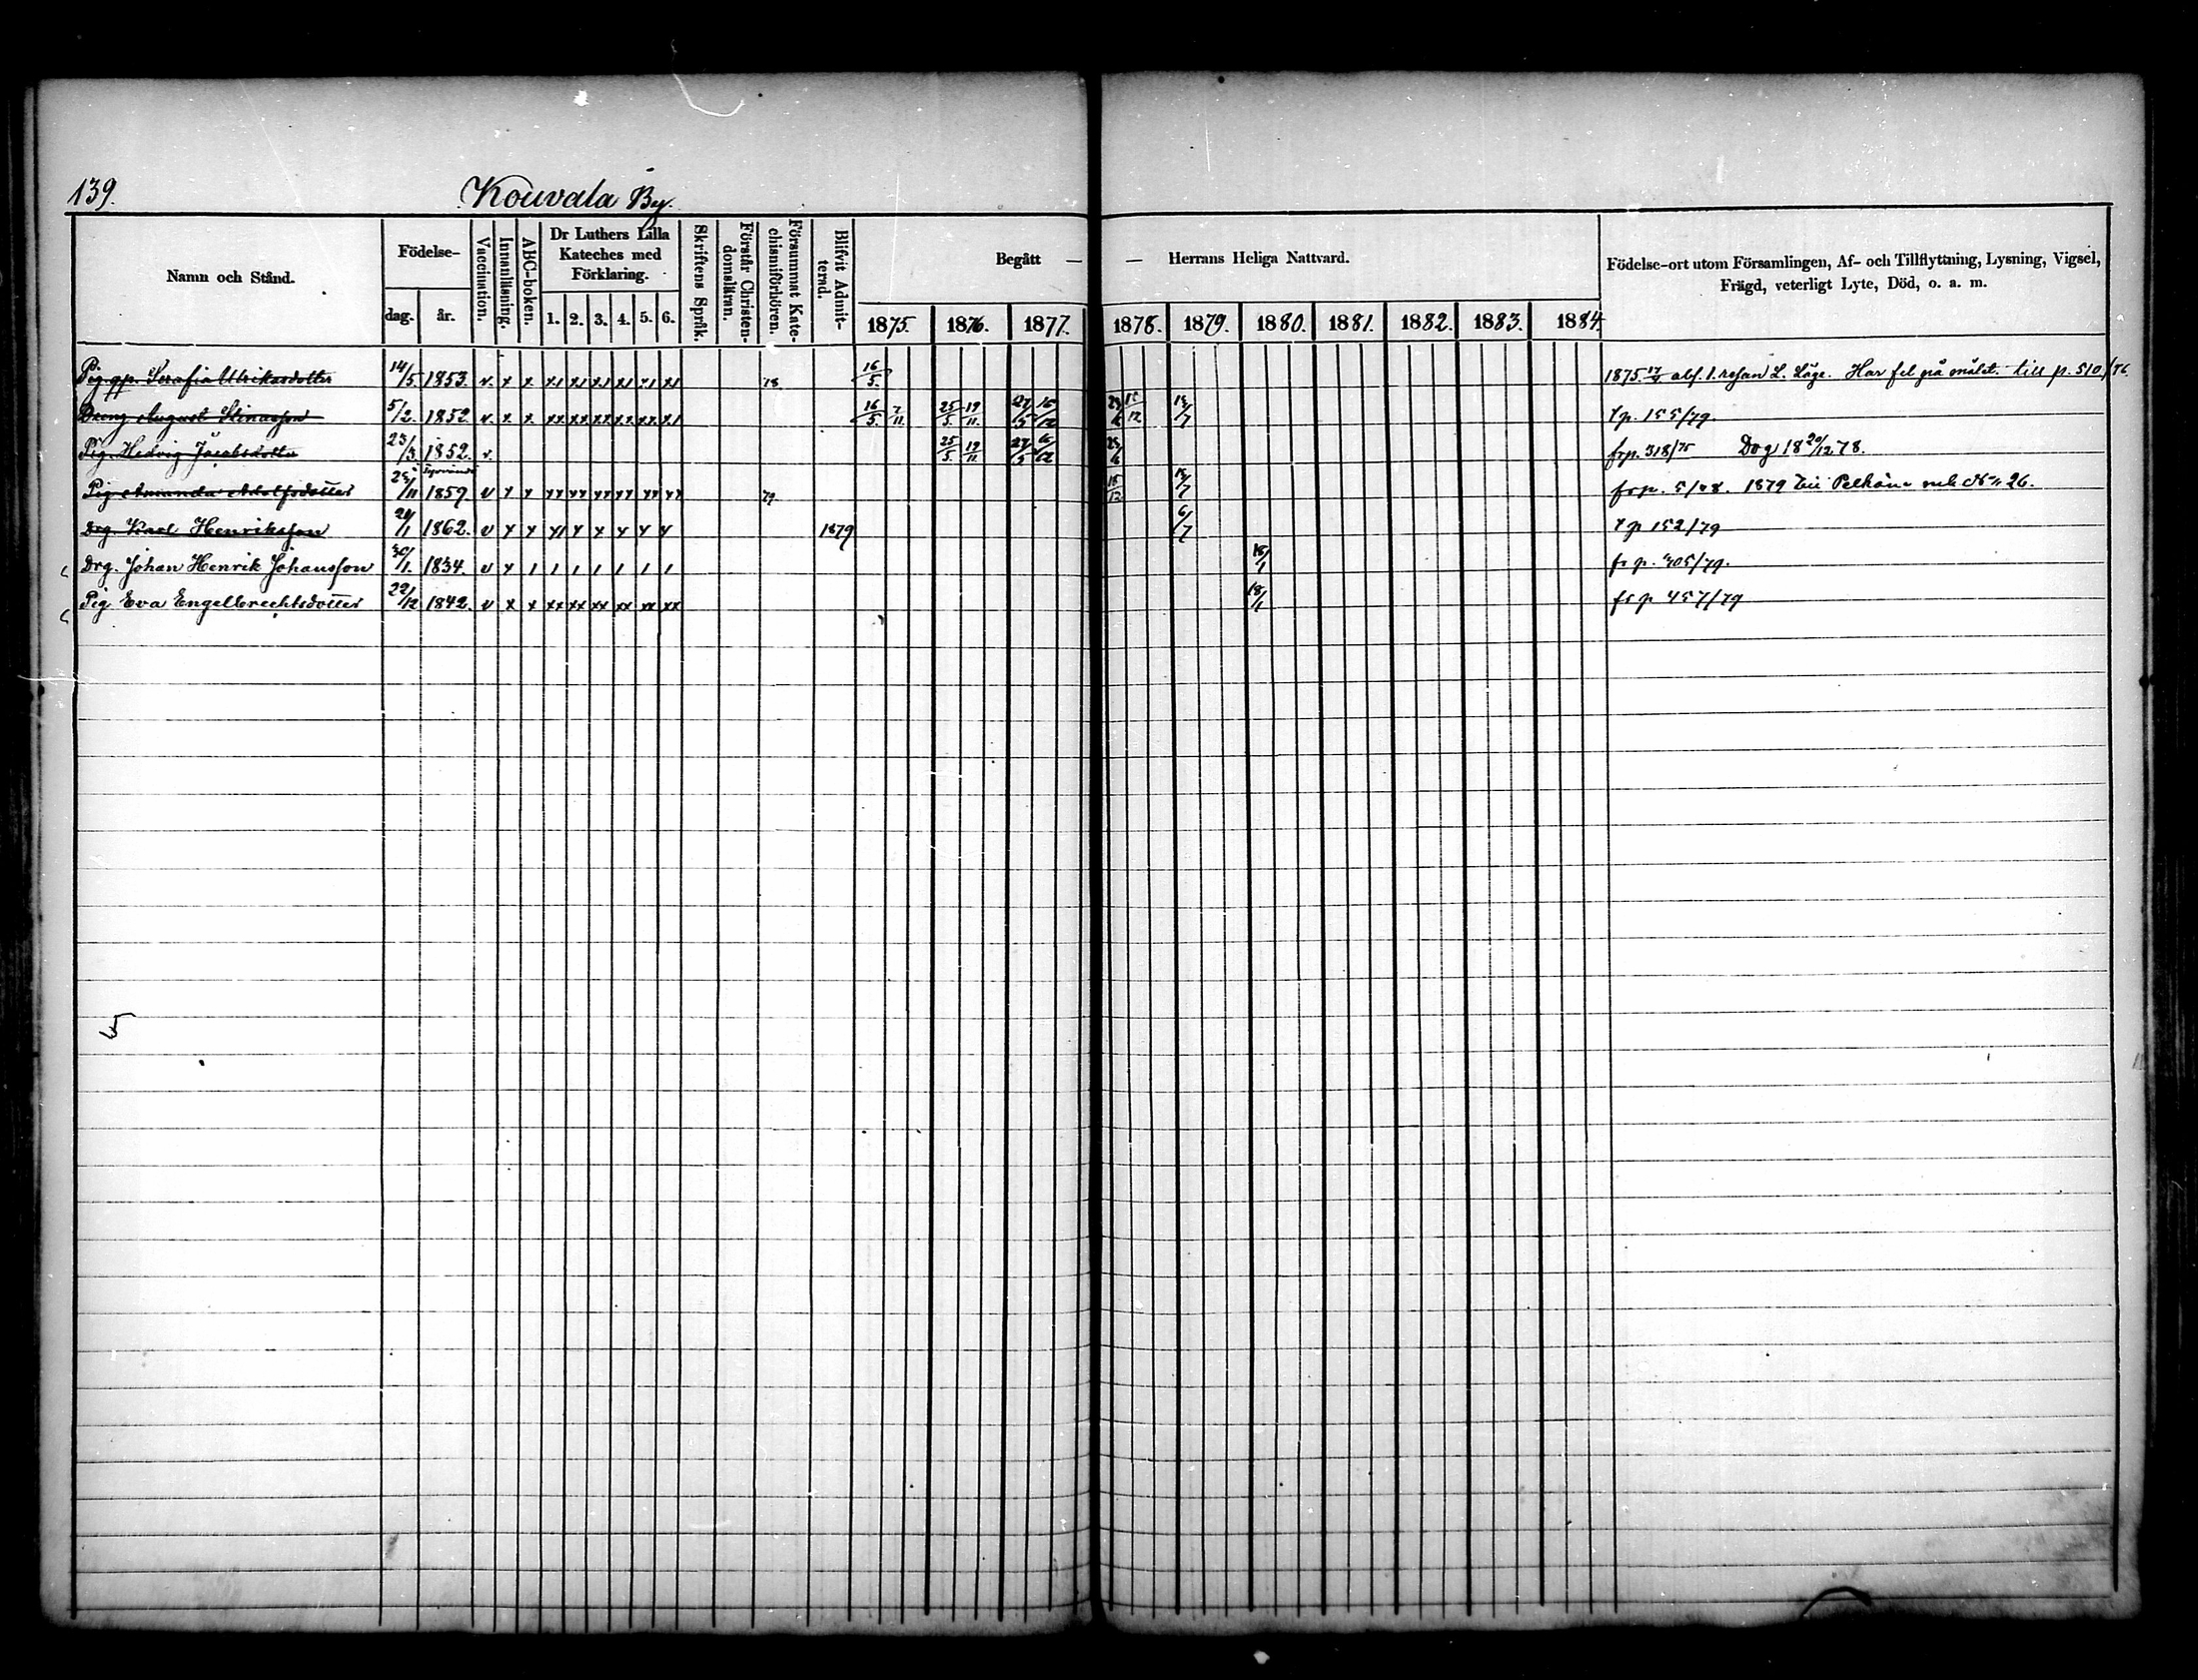 139.
Kouvala By.
Namn och Stånd.
Födelse-
dag. år.
Vaccination.
Innanläsning.
ABC-boken.
Dr Luthers Lilla
Kateches med
Förklaring.
1. 2. 3. 4. 5. 6.
Skriftens Språk.
Förstår Christen-
domsläran.
Försummat Kate-
chismiförhören.
Blifvit Admit-
terad.
Begått — — Herrans Heliga Nattvard.
1875. 1876. 1877. 1878. 1879. 1880. 1881. 1882. 1883. 1884.
Födelse-ort utom Församlingen, Af- och Tillflyttning, Lysning, Vigsel,
Frägd, veterligt Lyte, Död, o. a. m.
Pig. Serafia Ulriksdotter 14/5 1853. v. x x x1 x1 x1 x1 x1 x1 78 16/5 1875 abs. 1. resan L. Läge. Har fel på målet. till p. 510/76
Dreng August Stinasson 5/2. 1852. v. x x xx xx xx xx xx x1 16/5 7/11 25/5 19/11 15/12 15/7 p. 155/79
Pig. Hedvig Jacobsdotter 23/3 1852. v. 25/5 19/11 frp. 318/75 Dog 18 20/12 78.
Pig Amanda Adolfsdotter 25/11 1859 v x x xx xx xx xx xx xx 79 15/12 15/7 frp. 5/78. 1879 till Pelkäne 26.
Drg. Karl Henriksson 24/1 1862. v x x x1 x x x x x 1879 6/7 p 152/79
Drg. Johan Henrik Johansson 30/1. 1834. v x 1 1 1 1 1 1 1 18/1 fr p. 405/79.
Pig Eva Engelbrechtsdotter 22/12 1842. v x x xx xx xx xx xx xx 18/1 fr p 457/79